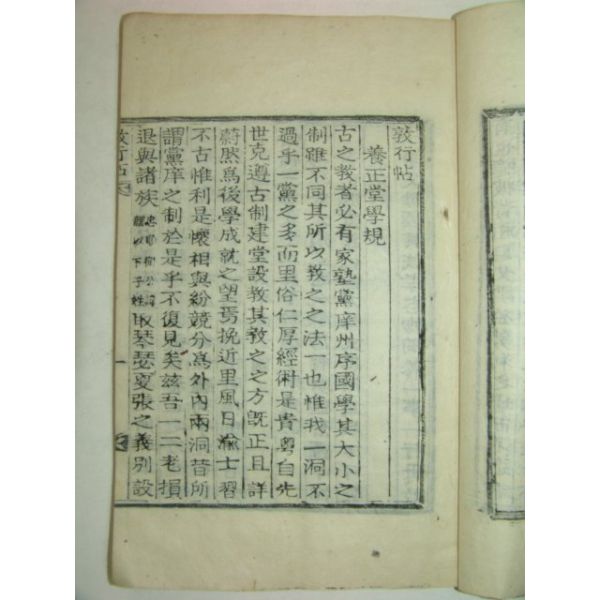 敦行帖
養正堂學規
古之敎者必有家塾黨庠州序國學其大小之
制雖不同其所以敎之之法一也惟我一洞不
過乎一黨之多而里俗仁厚經術是貴粤自先
世克遵古制建堂設敎其敎之之方旣正且詳
蔚然爲後學成就之望焉挽近里風日渝士習
不古惟利是懷相與紛競分爲外內兩洞昔所
謂黨庠之制於是乎不復見矣玆吾一二老損
退與諸族取琴瑟更張之義別設
敦行帖
一